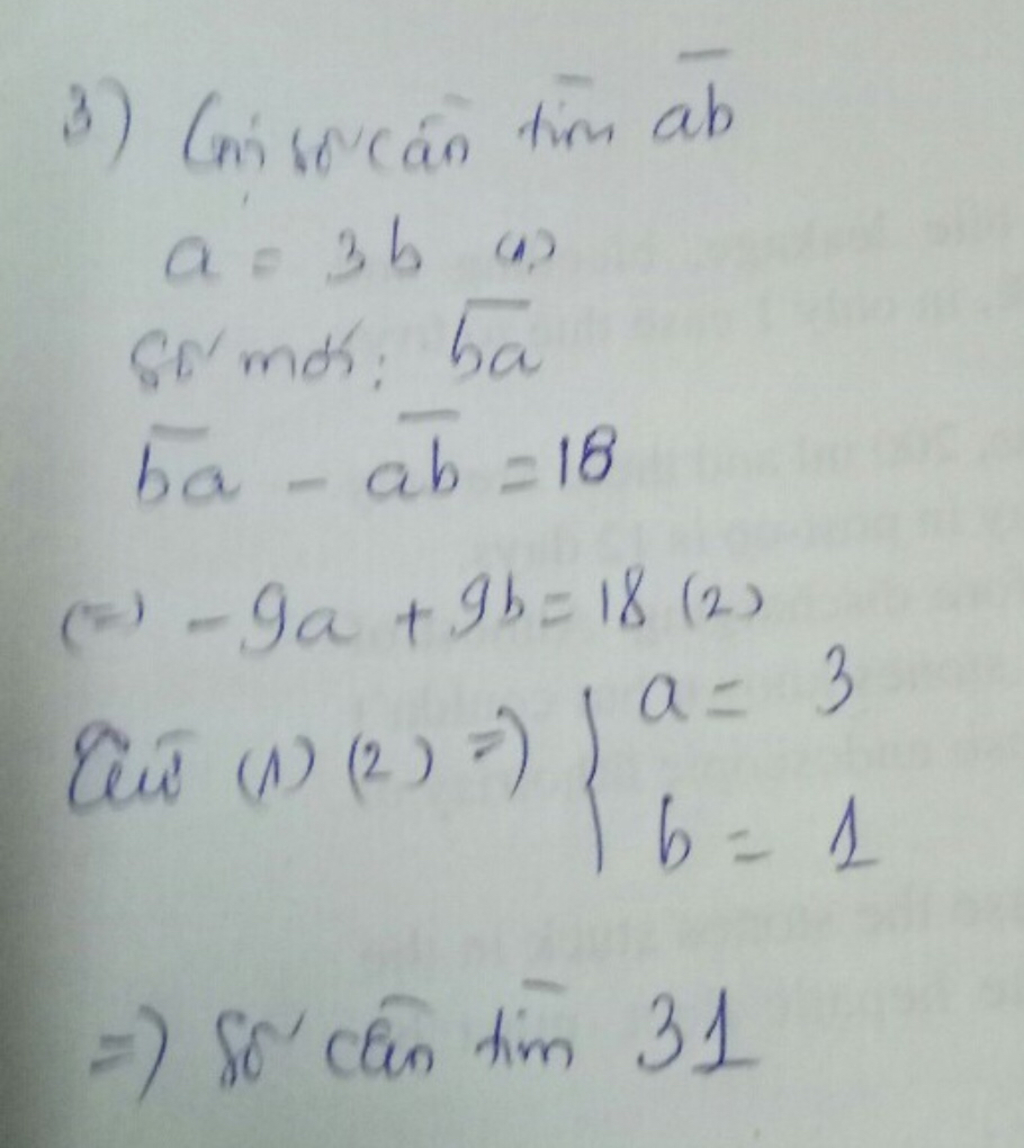 3) Gọi số cần tìm a̅b̅
a = 3b (1)
Số mới: b̅a̅
b̅a̅ - a̅b̅ = 18
(=) -9a + 9b = 18 (2)
Từ (1) (2) =) { a = 3
b = 1
=) Số cần tìm 31